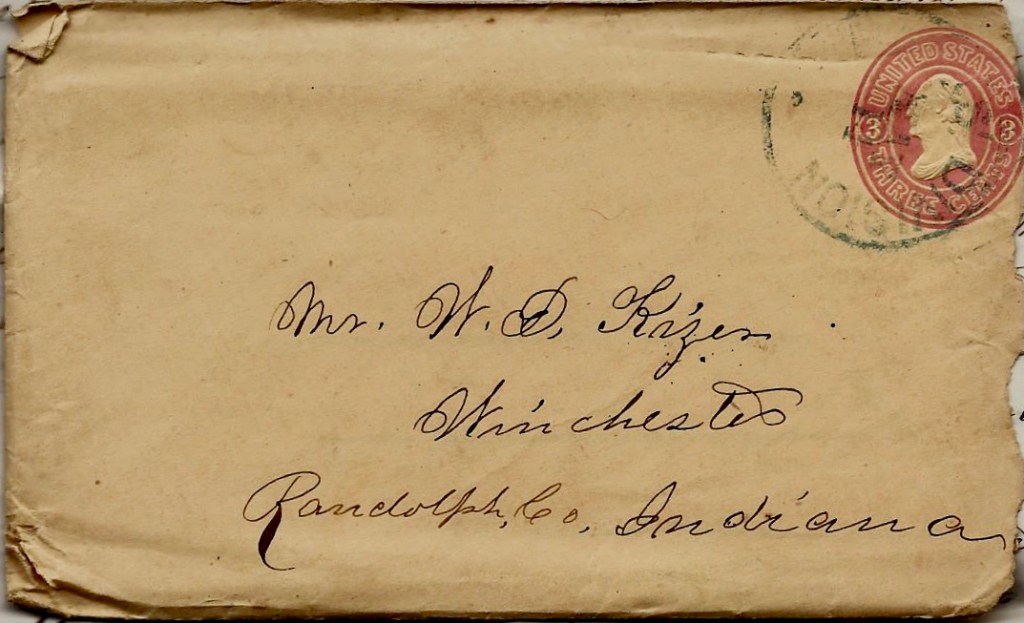 UNITED STATES
3 3
THREE CENTS
Mr. W. D. Kizer
Winchester
Randolph, Co, Indiana